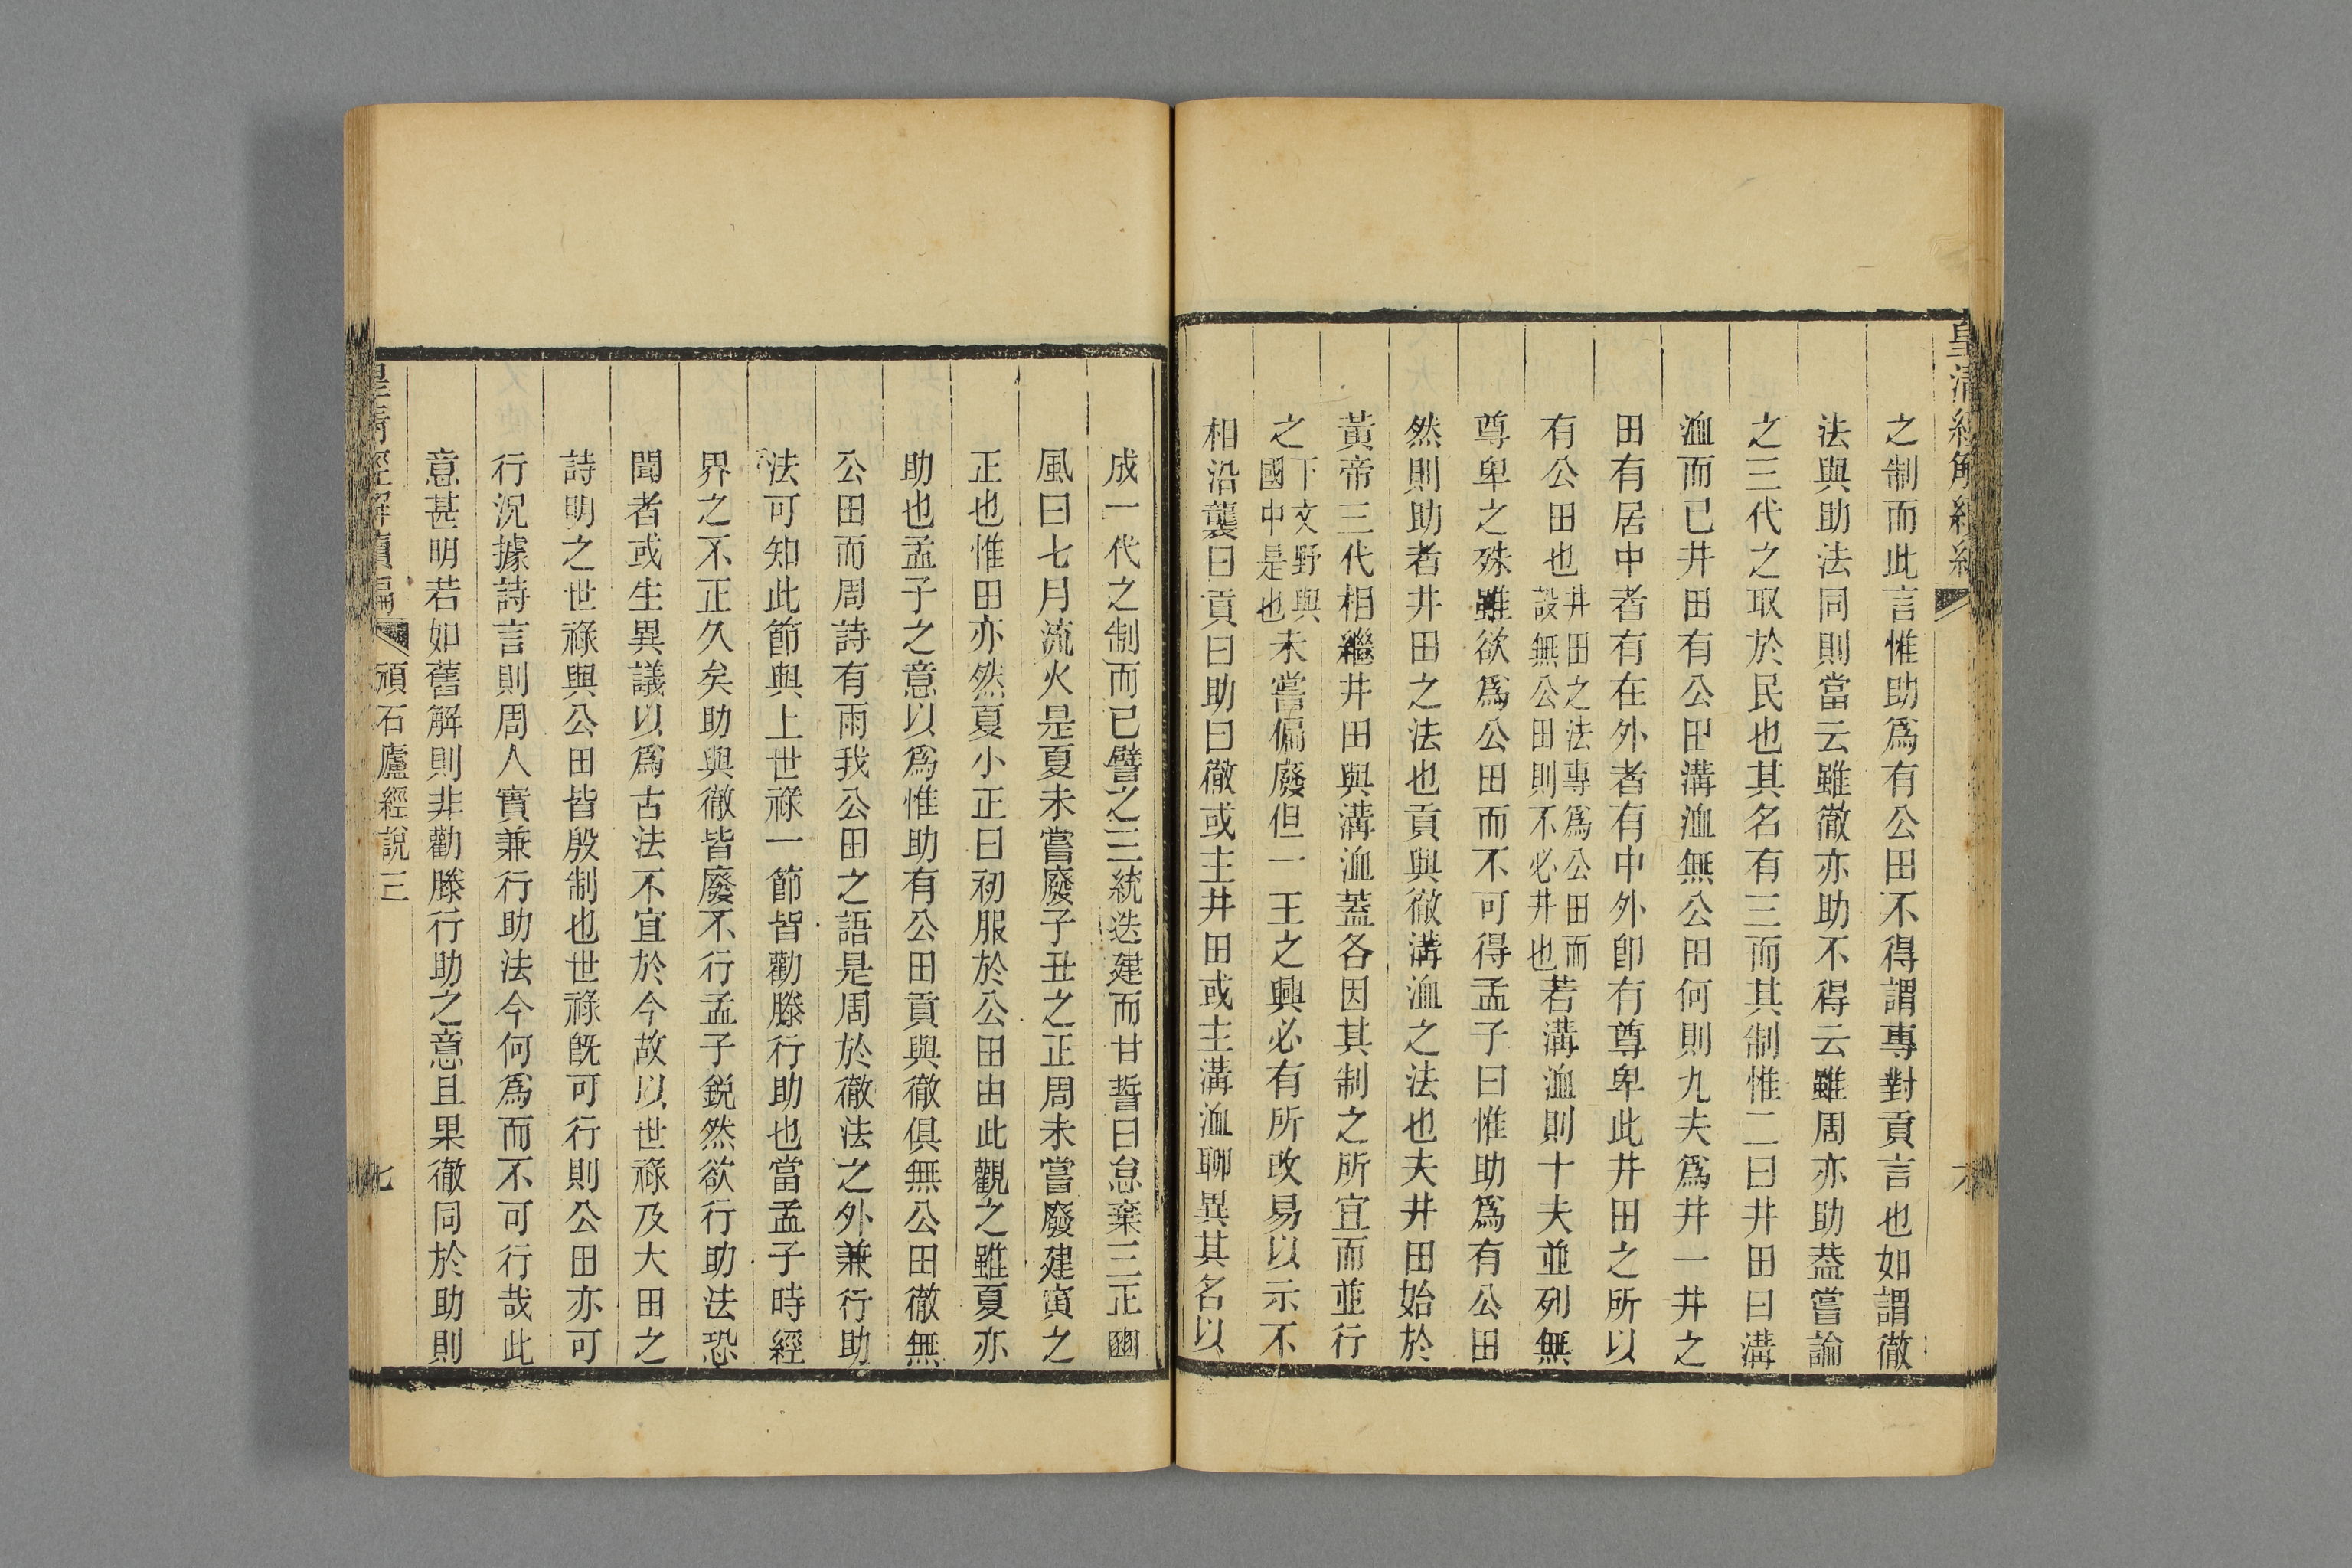 皇清經解續編
之制而此言惟助爲有公田不得謂專對貢言也如謂徹
法與助法同則當云雖徹亦助不得云雖周亦助葢嘗論
之三代之取於民也其名有三而其制惟二曰井田曰溝
洫而已井田有公田溝洫無公田何則九夫爲井一井之
田有居中者有在外者有中外卽有尊卑此井田之所以
有公田也井田之法專爲公田而設無公田則不必井也若溝洫則十夫並列無
尊卑之殊雖欲爲公田而不可得孟子曰惟助爲有公田
然則助者井田之法也貢與徹溝洫之法也夫井田始於
黃帝三代相繼井田與溝洫蓋各因其制之所宜而並行
之下文野與國中是也未嘗偏廢但一王之興必有所改易以示不
相沿襲曰貢曰助曰徹或主井田或主溝洫聊異其名以
成一代之制而已譬之三統迭建而甘誓曰怠棄三正豳
風曰七月流火是夏未嘗廢子丑之正周未嘗廢建寅之
正也惟田亦然夏小正曰初服於公田由此觀之雖夏亦
助也孟子之意以爲惟助有公田貢與徹俱無公田徹無
公田而周詩有雨我公田之語是周於徹法之外兼行助
法可知此節與上世祿一節皆勸滕行助也當孟子時經
界之不正久矣助與徹皆廢不行孟子銳然欲行助法恐
聞者或生異議以爲古法不宜於今故以世祿及大田之
詩明之世祿與公田皆殷制也世祿旣可行則公田亦可
行況據詩言則周人實兼行助法今何爲而不可行哉此
意甚明若如舊解則非勸滕行助之意且果徹同於助則
皇清經解續編 頑石廬經說三 七